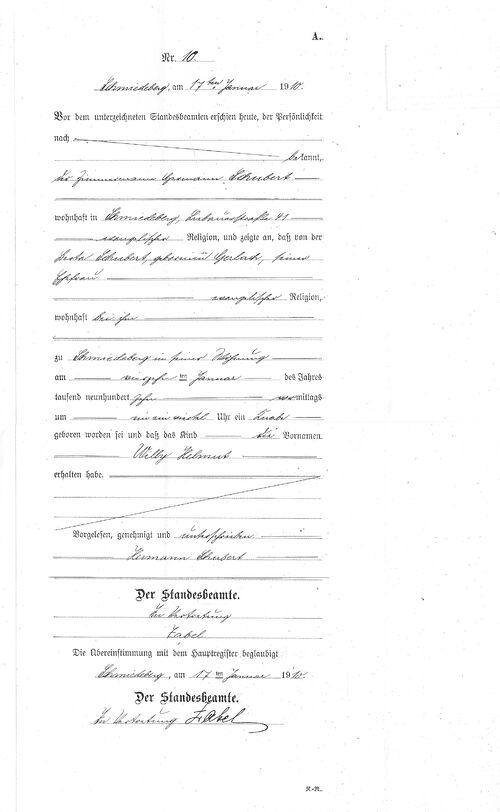 A.
Nr. 10.
Schmiedeberg, am 17ten Januar 1910.
Vor dem unterzeichneten Standesbeamten erschien heute, der Persönlichkeit
nach
bekannt,
der Zimmermann Hermann Schubert
wohnhaft in Schmiedeberg, 41
evangelischer Religion, und zeigte an, daß von der
Schubert, geborenen Gerlach, seiner
Ehefrau
evangelischer Religion,
wohnhaft bei ihm
zu Schmiedeberg in seiner Wohnung
am ten Januar des Jahres
tausend neunhundert zehn vormittags
um ein viertel Uhr ein Knabe
geboren worden sei und daß das Kind die Vornamen
Willy Helmut
erhalten habe.
Vorgelesen, genehmigt und unterschrieben
Hermann Schubert
Der Standesbeamte.
In Vertretung
Zabel
Die Übereinstimmung mit dem Hauptregister beglaubigt
Schmiedeberg, am 17ten Januar 1910.
Der Standesbeamte.
In Vertretung Zabel